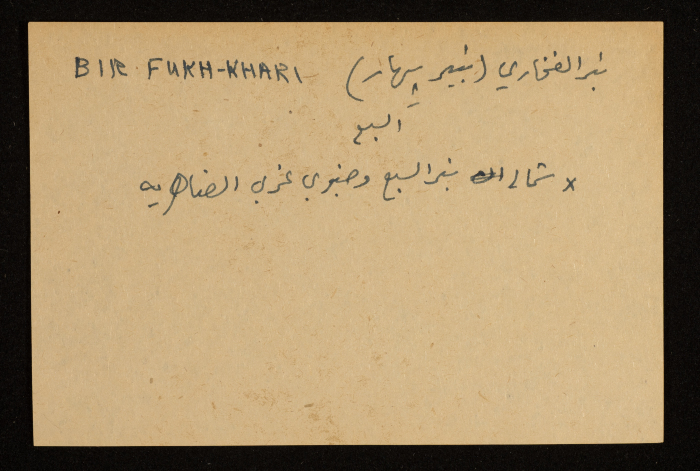 BIR FUKH-KHARI بئر الفخاري (بئير پهار)
السبع
x شمالي بئر السبع وجنوبي غربي الضاهريه